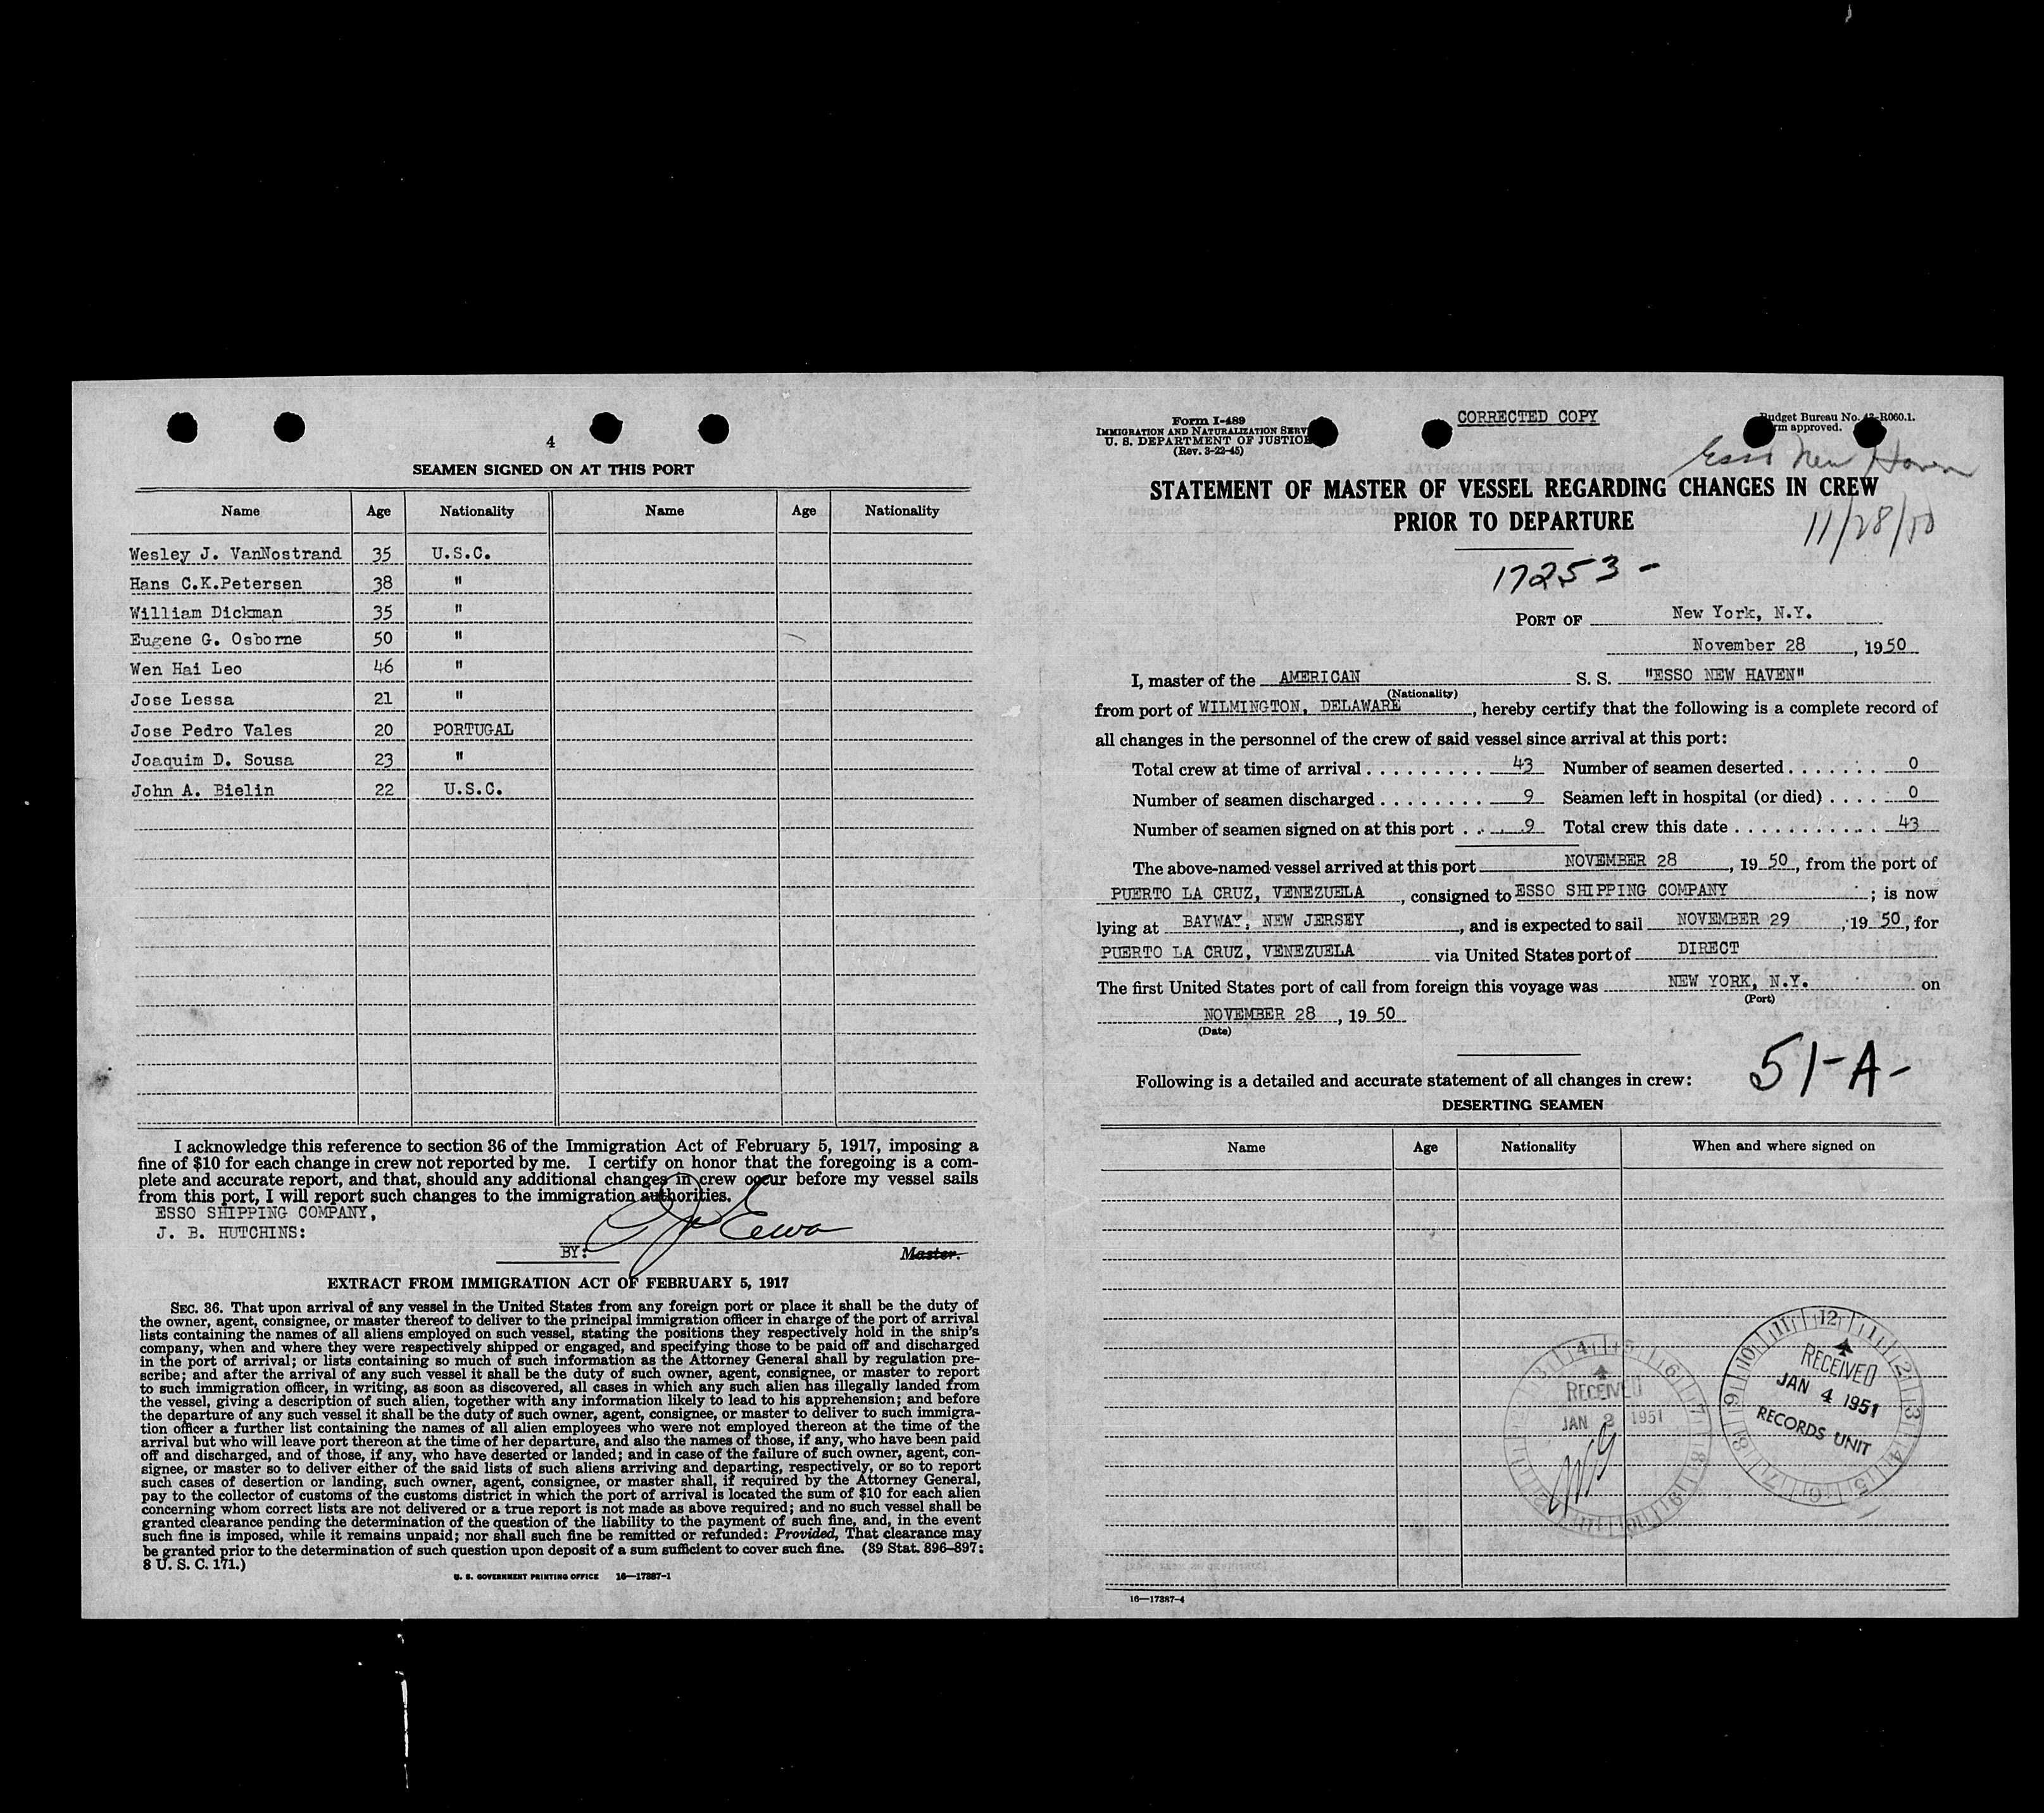 4
SEAMEN SIGNED ON AT THIS PORT
Name Age Nationality Name Age Nationality
Wesley J. VanNostrand 35 U.S.C.
Hans C.K.Petersen 38 "
William Dickman 35 "
Eugene G. Osborne 50 "
Wen Hai Leo 46 "
Jose Lessa 21 "
Jose Pedro Vales 20 PORTUGAL
Joaquim D. Sousa 23 "
John A. Bielin 22 U.S.C.
I acknowledge this reference to section 36 of the Immigration Act of February 5, 1917, imposing a
fine of $10 for each change in crew not reported by me. I certify on honor that the foregoing is a com-
plete and accurate report, and that, should any additional changes in crew occur before my vessel sails
from this port, I will report such changes to the immigration authorities.
ESSO SHIPPING COMPANY,
J. B. HUTCHINS:
BY: Master.
EXTRACT FROM IMMIGRATION ACT OF FEBRUARY 5, 1917
SEC. 36. That upon arrival of any vessel in the United States from any foreign port or place it shall be the duty of
the owner, agent, consignee, or master thereof to deliver to the principal immigration officer in charge of the port of arrival
lists containing the names of all aliens employed on such vessel, stating the positions they respectively hold in the ship's
company, when and where they were respectively shipped or engaged, and specifying those to be paid off and discharged
in the port of arrival; or lists containing so much of such information as the Attorney General shall by regulation pre-
scribe; and after the arrival of any such vessel it shall be the duty of such owner, agent, consignee, or master to report
to such immigration officer, in writing, as soon as discovered, all cases in which any such alien has illegally landed from
the vessel, giving a description of such alien, together with any information likely to lead to his apprehension; and before
the departure of any such vessel it shall be the duty of such owner, agent, consignee, or master to deliver to such immigra-
tion officer a further list containing the names of all alien employees who were not employed thereon at the time of the
arrival but who will leave port thereon at the time of her departure, and also the names of those, if any, who have been paid
off and discharged, and of those, if any, who have deserted or landed; and in case of the failure of such owner, agent, con-
signee, or master so to deliver either of the said lists of such aliens arriving and departing, respectively, or so to report
such cases of desertion or landing, such owner, agent, consignee, or master shall, if required by the Attorney General,
pay to the collector of customs of the customs district in which the port of arrival is located the sum of $10 for each alien
concerning whom correct lists are not delivered or a true report is not made as above required; and no such vessel shall be
granted clearance pending the determination of the question of the liability to the payment of such fine, and, in the event
such fine is imposed, while it remains unpaid; nor shall such fine be remitted or refunded: Provided, That clearance may
be granted prior to the determination of such question upon deposit of a sum sufficient to cover such fine. (39 Stat. 896-897;
8 U. S. C. 171.)
U. S. GOVERNMENT PRINTING OFFICE 16—17387-1
Form I-489
IMMIGRATION AND NATURALIZATION SERV
U. S. DEPARTMENT OF JUSTICE
(Rev. 3-22-45)
CORRECTED COPY
Budget Bureau No. 43-R060.1.
rm approved.
Esso New Haven
STATEMENT OF MASTER OF VESSEL REGARDING CHANGES IN CREW
PRIOR TO DEPARTURE
11/28/50
17253 -
PORT OF New York, N.Y.
November 28, 1950
I, master of the AMERICAN S. S. "ESSO NEW HAVEN"
(Nationality)
from port of WILMINGTON, DELAWARE, hereby certify that the following is a complete record of
all changes in the personnel of the crew of said vessel since arrival at this port:
Total crew at time of arrival . . . . . . . . . 43 Number of seamen deserted . . . . . . . 0
Number of seamen discharged . . . . . . . . 9 Seamen left in hospital (or died) . . . . 0
Number of seamen signed on at this port . . . 9 Total crew this date . . . . . . . . . . . . 43
The above-named vessel arrived at this port NOVEMBER 28, 19 50, from the port of
PUERTO LA CRUZ, VENEZUELA, consigned to ESSO SHIPPING COMPANY; is now
lying at BAYWAY, NEW JERSEY, and is expected to sail NOVEMBER 29, 19 50, for
PUERTO LA CRUZ, VENEZUELA via United States port of DIRECT
The first United States port of call from foreign this voyage was NEW YORK, N.Y. on
(Port)
NOVEMBER 28, 19 50
(Date)
51-A-
Following is a detailed and accurate statement of all changes in crew:
DESERTING SEAMEN
Name Age Nationality When and where signed on
RECEIVED
JAN 1951
RECEIVED
JAN 4 1951
RECORDS UNIT
16—17387-4